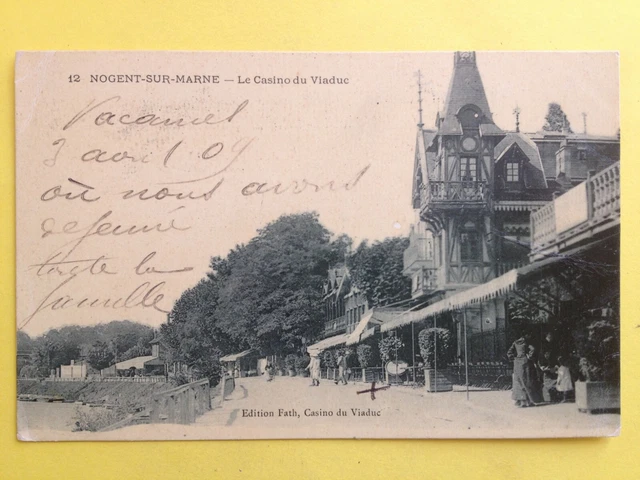 12 NOGENT-SUR-MARNE — Le Casino du Viaduc
Vacances
3 avril 09
où nous avons
dejeuné
toute la
famille
Edition Fath, Casino du Viaduc